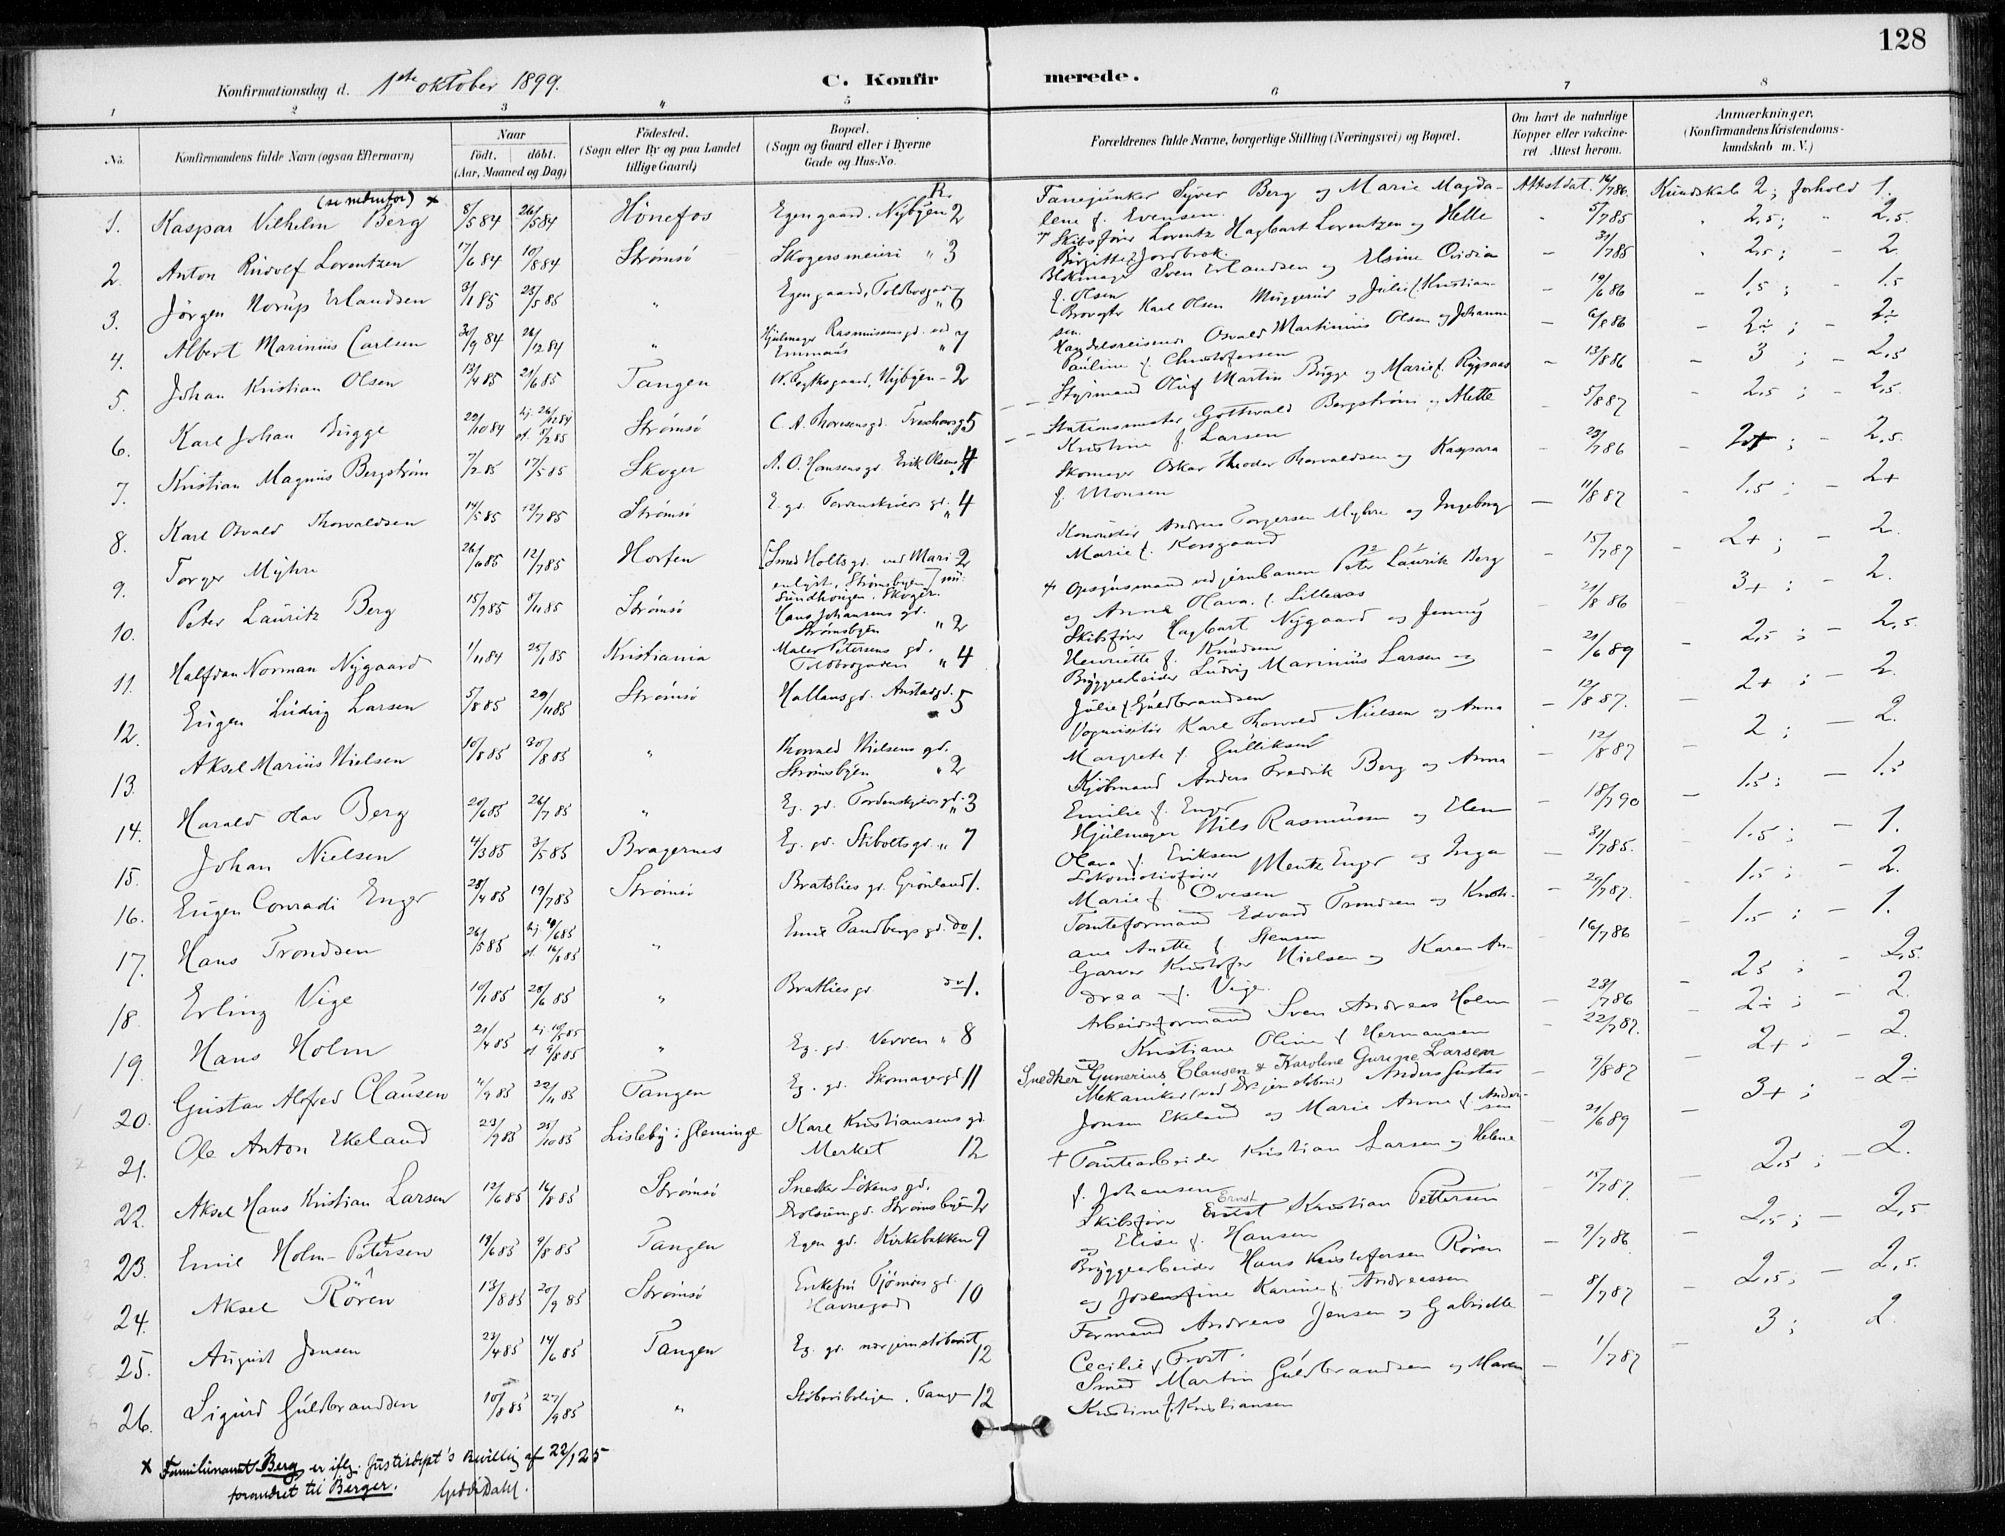 128
Konfirmationsdag d. 1ste oktober 1899.
C. Konfirmerede.
1 2 3 4 5 6 7 8
No. Konfirmandens fulde Navn (ogsaa Efternavn) Naar født. døbt. (Aar, Maaned og Dag) Fødested. (Sogn eller By og paa Landet tillige Gaard) Bopæl. (Sogn og Gaard eller i Byerne Gade og Hus-No. Forældrenes fulde Navne, borgerlige Stilling (Næringsvei) og Bopæl. Om havt de naturlige Kopper eller vaccineret Attest herom. Anmærkninger. (Konfirmandens Kristendomskundskab m. V.)
(se nedenfor) x
1. Kaspar Vilhelm Berg 8/5 84 26/5 84 Hönefos Egen gaard. Nybyen R. 2 Fanejunker Syver Berg og Marie Magdalene f. Evensen. Attest dat. 16/7 86. Kundskab 2; forhold 1.
2. Anton Rudolf Lorentzen 17/6 84 10/8 84 Strømsö Skogersmeieri " 3 Skibsfører Lorentz Hagbart Lorentzen og Helle Birgitte f. Jordbrok. 5/7 85 2,5; 2,5.
3. Jörgen Norup Erlandsen 3/1 85 25/5 85 " Egengaard, Toldbogaden " 6 Blokmager Sven Erlandsen og Elsine Ovidia f. Olsen 31/7 85 2,5; 2.
4. Albert Marinius Carlsen 30/9 84 26/12 84 " Hjulmager Rasmussens gd. ved Emmaus " 7 Brovogter Karl Olsen Muggerud og Julie f. Kristiansen. 19/6 86 1,5; 1.5
5. Johan Kristian Olsen 13/4 85 21/6 85 Tangen Nybyen - 2 Handelsreisende Osvald Martinius Olsen og Johanne Pauline f. Christofersen 6/8 86 2÷; 2÷
6. Karl Johan Bugge 29/10 84 hj. 26/12 84 st. 5/2 85 Strømsö C. A. Thoresens gd. 5 Styrmand Oluf Martin Bugge og Marie f. 13/8 86 3; 2,5
7. Kristian Magnus Bergström 7/2 85 17/5 85 Skoger A. O. Hansens gd. Erik Olsens 4 Stationsmester Gotthvald Bergström og Mette Kristine f. Larsen 5/8 87 2,5; 2,5.
8. Karl Osvald Thorvaldsen 14/5 85 12/7 85 Strømsö E. gd. Tordenskjolds gd. " 4 Skomager Oskar Theodor Thorvaldsen og Kaspara f. Monsen 29/7 86 2+; 2,5.
9. Torger Myhre 26/6 85 12/7 85 Horten [Smed Holts gd. ved Marienlyst, Strømsbyen] nu: Sundhaugen, Skoger. 2 Andreas Torgersen Myhre og Ingeborg Marie f. Korsgaard 11/8 87 1,5; 2+
10. Peter Lauritz Berg 15/9 85 Strømsö Hans Johansens gd. Strømsbyen " 2 + Opsynsmand ved jernbanen Peter Laurits Berg og Anne Olava f. Lilleaas 15/7 87 2+; 2.
11. Halfdan Norman Nygaard 1/11 84 25/1 85 Kristiania Maler Petersens gd. Toldbogaden " 4 Skibsfører Hagbart Nygaard og Jenny Henriette f. Knudsen 21/8 86 3+; 2.
12. Eugen Ludvig Larsen 5/8 85 29/11 85 Strømsö Hallans gd. Anstadgd. 5 Bryggearbeider Ludvig Marinius Larsen og Julie f. Guldbrandsen 21/6 89 2,5; 2,5.
13. Aksel Marius Nielsen 10/8 85 30/8 85 " Thorvald Nielsens gd. Strømsbyen " 2 Vognvisitør Karl Thorvald Nielsen og Anna Margrete f. Gulliksen 12/8 87. 2+; 2.
14. Harald Olav Berg 20/6 85 26/7 85 " Eg. gd. Tordenskjolds gd. " 3 Kjøbmand Anders Fredrik Berg og Anna Emilie f. Enger 12/8 87 2; 2.
15. Johan Nielsen 4/3 85 3/5 85 Bragernes Eg. gd. Stibolts gd. " 7 Hjulmager Nils Rasmussen og Elen Olava f. Eriksen 18/7 90 1.5; 1.5
16. Eugen Conradi Enger 28/4 85 19/7 85 Strömsö Bratslies gd. Grönland 1. Lokomotivfører Mentz Enger og Inga Marie f. Ovesen 31/7 85. 1.5; 1.
17. Hans Trondsen 26/5 85 " Emil Tandbergs gd. do 1. Tomteformand Edvard Trondsen og Kristiane Anette f. Stensen 25/7 87. 1.5; 2.
18. Erling Vige 10/1 85 28/6 85 " Bratlies gd. do 1. Garver Kristofer Nielsen og Karen Andrea f. Vige 16/7 86 1.5; 1.
19. Hans Holm 21/4 85 " Eg. gd. Verven " 8 Arbeidsformand Sven Andreas Holm og Kristiane Oline f. Hermansen 28/7 86 2,5; 2,5.
20. Gustav Alfred Clausen 4/9 85 22/11 85 Tangen Eg. gd. Skomagergd 11 Snedker Gunerius Clausen & Karoline Gurine Larsen 22/7 87. 2÷; 2.
21. Ole Anton Ekeland 23/9 85 25/10 85 Lisleby i Glemminge Karl Kristiansens gd. Merket 12 Mekaniker (ved Dr. jernstøberi) Anders Gustav Jonsen Ekeland og Marie Anne f. Andersen 9/8 87 2+; 2.
22. Aksel Hans Kristian Larsen 12/6 85 16/8 85 Strømsö Snedker Lökens gd. Strømsbyen 2 + Tomtearbeider Kristian Larsen og Helene f. Johansen 21/6 89 3+; 2÷
23. Emil Holm-Pettersen 19/6 85 9/8 85 Tangen Egen gd. Kirkebakken 9 Skibsfører Ernst Kristian Pettersen og Elise f. Hansen 15/7 87. 2,5; 2.
24. Aksel Rören 13/8 85 20/9 85 Strømsö Enkefru Tjömöes gd. Havnegad 10 Bryggearbeider Hans Kristofersen Rören og Josefine Karine f. Andreassen 7/7 86 2,5; 2,5
25. August Jensen 23/4 85 14/6 85 Tangen Eg. gd. nær jernstøberiet 12 Formand Andreas Jensen og Gabrielle Cecilie f. Trost. 8/7 87 2,5; 2,5.
26. Sigurd Guldbrandsen 10/8 85 27/9 85 " Støberiboligen. Tangen 12 Smed Martin Guldbrandsen og Maren Kristine f. Kristiansen 1/7 87 3; 2
x Familienavnet Berg er iflg. Justisdept's Bevilling af 22/1 25
forandret til Berger. Gjedde Dahl.